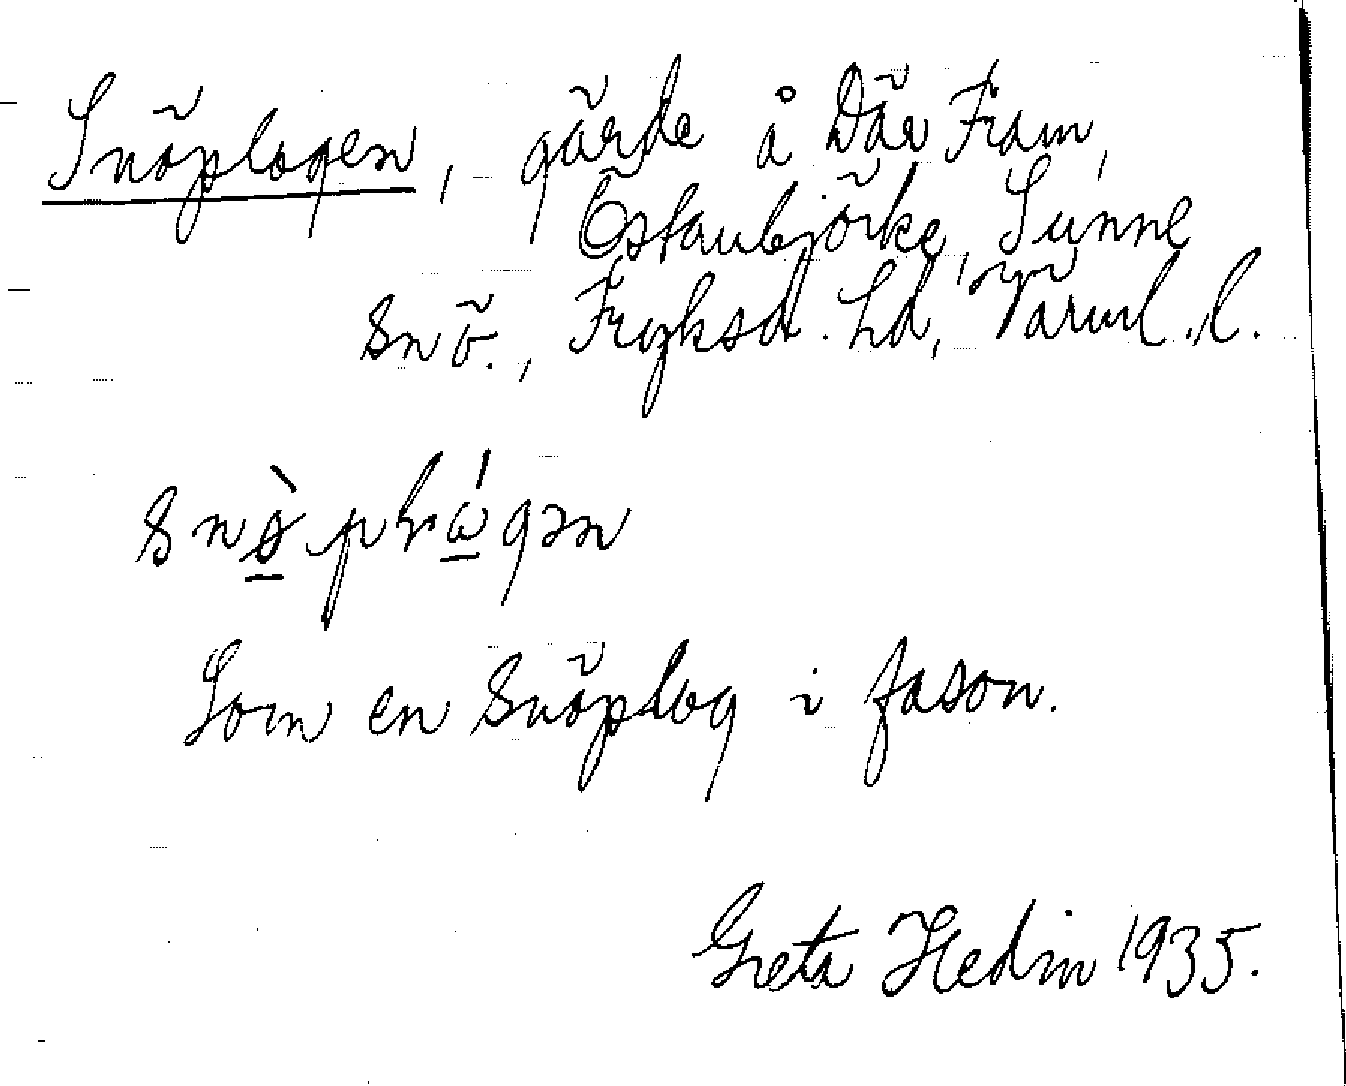 Snöplogen, gärde å Där Fram,
Östanbjörke, Sunne
snö., Fryksd. hd, Värml. l.
Som en snöplog i fason.
Greta Hedin 1935.